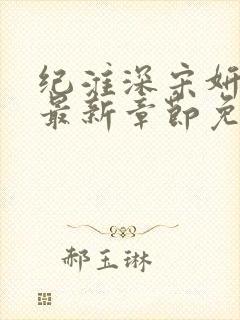 纪淮深宋妍
最新章节免
郝玉琳